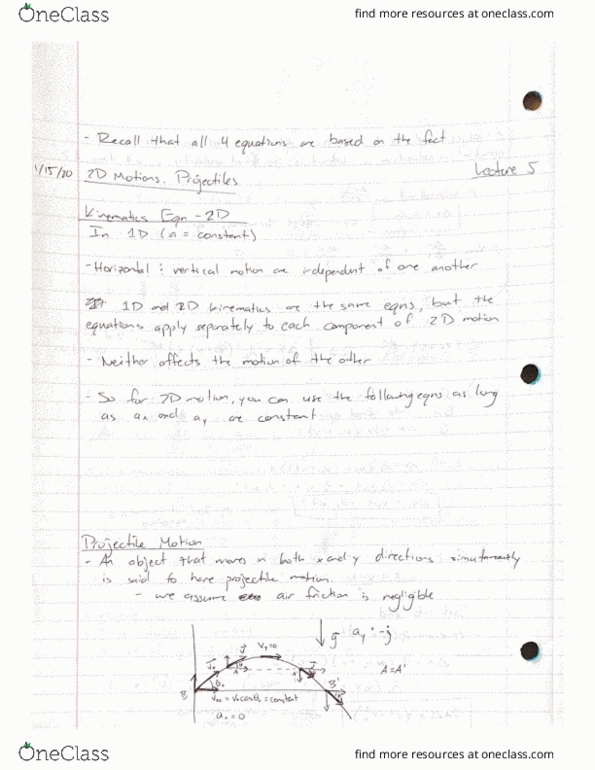 OneClass
find more resources at oneclass.com
- Recall that all 4 equations are based on the fact
1/15/20 2D Motions. Projectiles Lecture 5
Kinematics Eqn - 2D
In 1D (a = constant)
- Horizontal : vertical motion are independent of one another
1D and 2D kinematics are the same eqns, but the
equations apply separately to each component of 2D motion
- Neither affects the motion of the other
- So for 2D motion, you can use the following eqns as long
as ax and ay are constant
Projectile Motion
- An object that moves in both x and y directions simultaneously
is said to have projectile motion.
- we assume air friction is negligible
g ay = -j
Vy=0
A=A'
B'
θ₀
B
= V₀cosθ₀ = constant
=0
OneClass
find more resources at oneclass.com